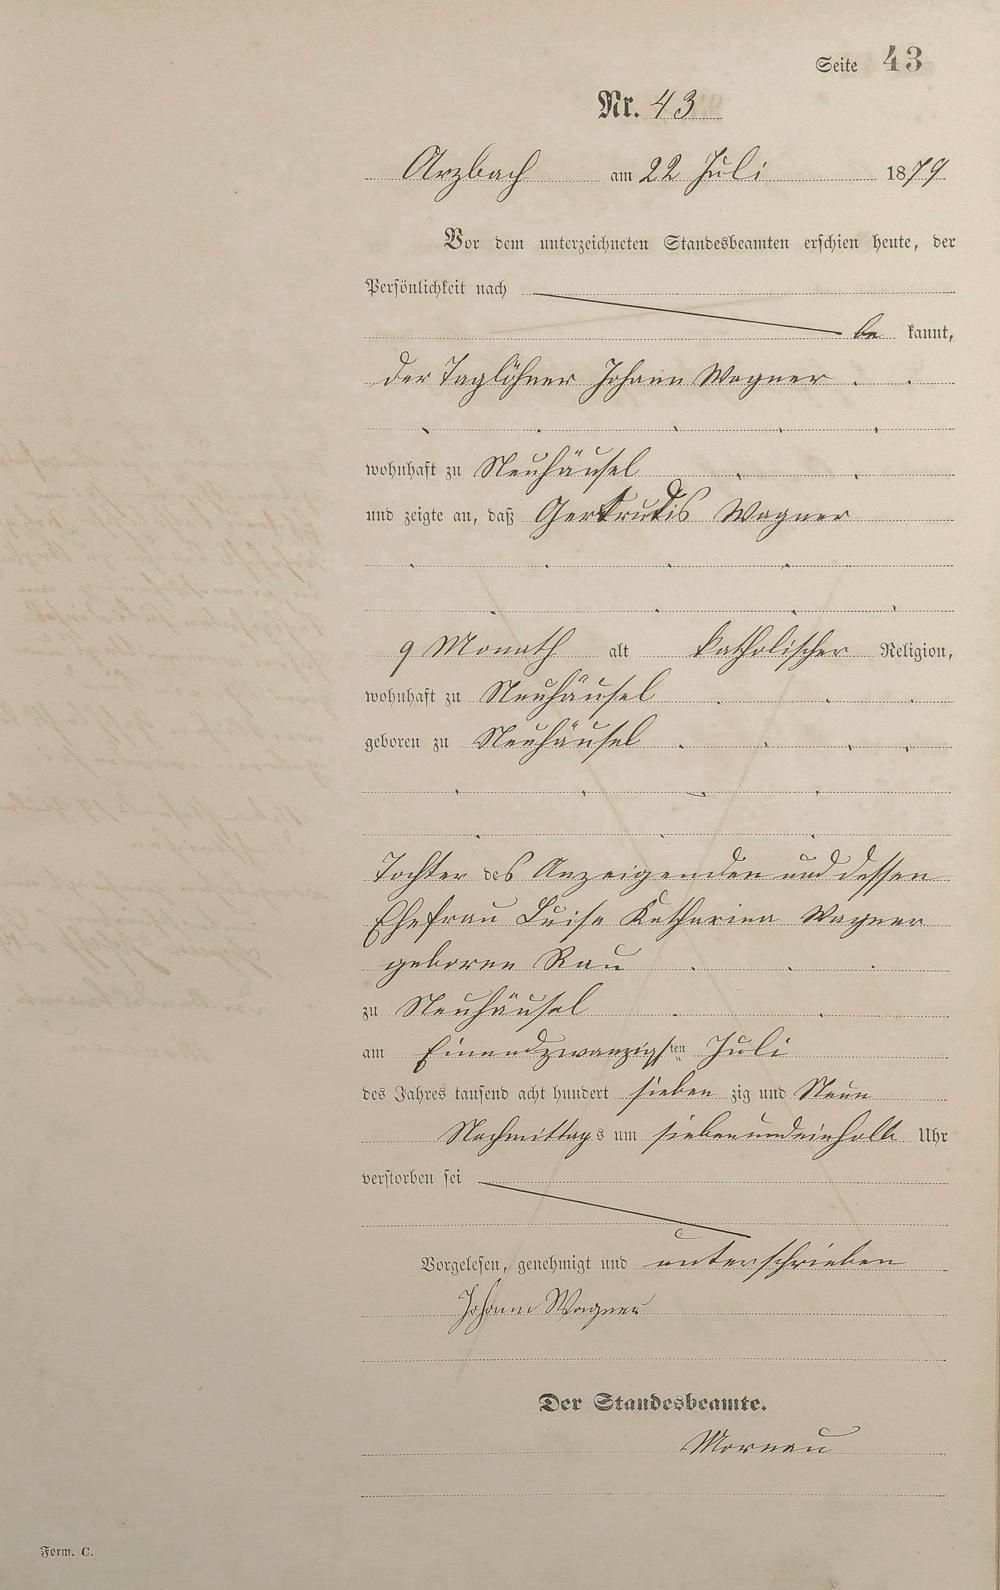 Seite 43
Nr. 43
Arzbach am 22 Juli 1879
Vor dem unterzeichneten Standesbeamten erschien heute, der
Persönlichkeit nach
be kannt,
der Taglöhner Johann Wagner
wohnhaft zu Neuhäusel
und zeigte an, daß Gertrudis Wagner
9 Monath alt katholischer Religion,
wohnhaft zu Neuhäusel
geboren zu Neuhäusel
Tochter des Anzeigenden und dessen
Ehefrau Luise Katharina Wagner
geborene Rau
zu Neuhäusel
am Einundzwanzigsten Juli
des Jahres tausend acht hundert sieben zig und Neun
Nachmittags um siebenundeinhalb Uhr
verstorben sei
Vorgelesen, genehmigt und unterschrieben
Johann Wagner
Der Standesbeamte.
Mornau
Form. C.